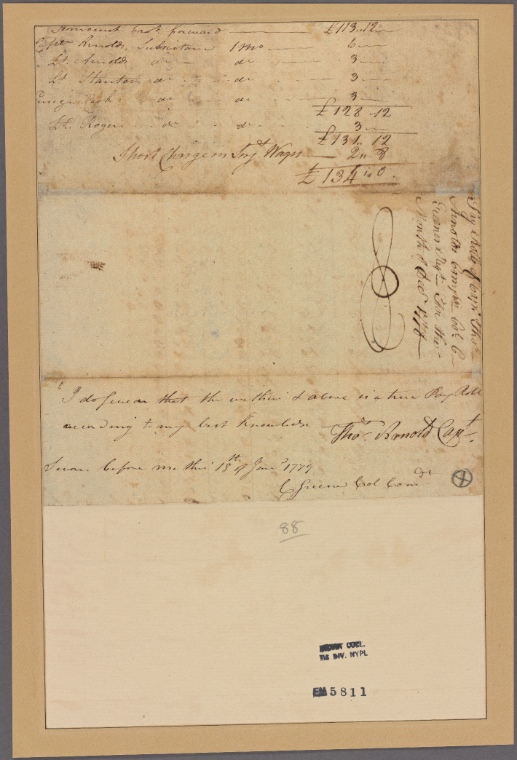 Amount brot forward £113..12
Capt Arnolds Subsistance 1 mo 6
Lt Arnolds do do 3
Lt Stanton do do 3
Ensign do do 3
£128..12
Lt. Rogers do do 3
£131..12
Short Charge in Wages 2.. 8
£134..0.
Pay Roll of Capt Tho
Arnolds Company Col C
Greenes Regt For the
Month of Decr 1778
I do Swear that the within & above is a true Pay Roll
according to my best Knowledge
Thos. Arnold Capt.
Sworn before me this 15th of Jany 1779
C Greene Col Comdt
88
TIS INV. NYPL
EM 5811